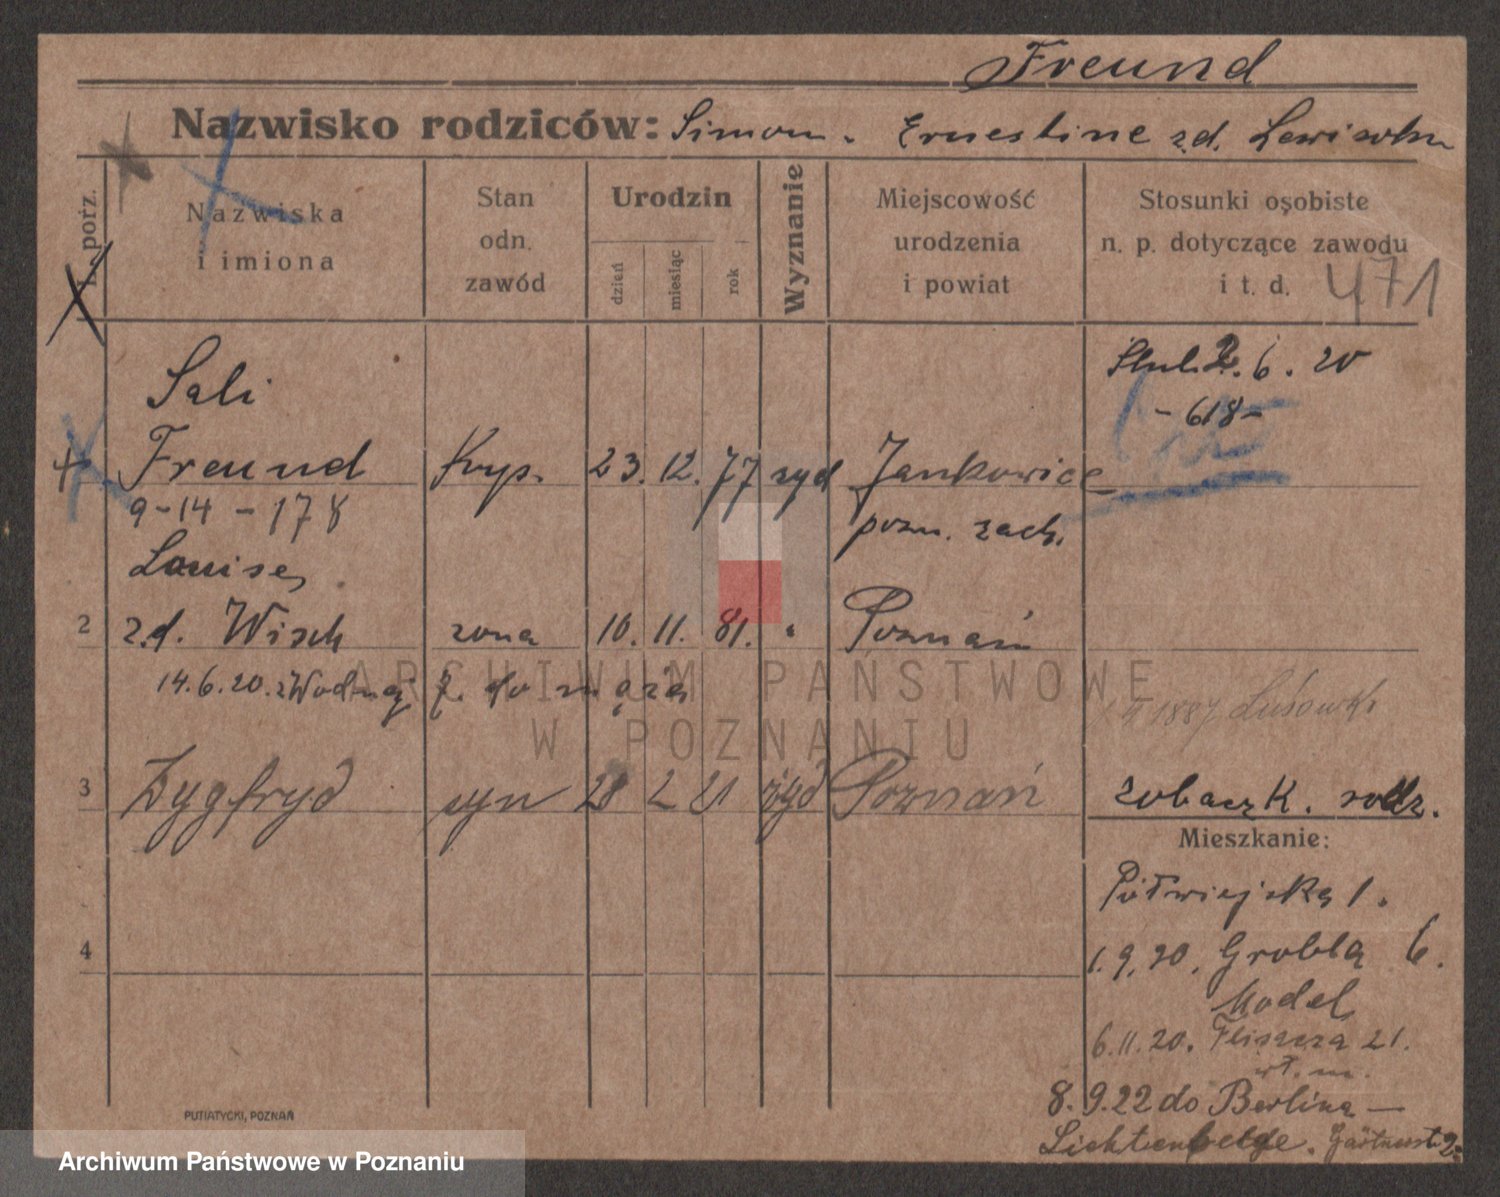 Freund
Nazwisko rodziców: Simon. Ernestine z.d. Lewisohn
L. porz.
Nazwiska
i imiona
Stan
odn.
zawód
Urodzin
dzień
miesiąc
rok
Wyznanie
Miejscowość
urodzenia
i powiat
Stosunki osobiste
n. p. dotyczące zawodu
i t. d.
471
Sali
Freund Kup. 23. 12. 77 zyd Jankowice
pozn. zach.
Slub. 2. 6. 20
-618-
9-14-178
Louise,
2 z.d. Wisch zona 10. 11. 81. " Poznań
14.6.20. z Wodnej 7. do męża
1887 Lusowko
3 Zygfryd syn 28 2 21 żyd Poznań
zobacz K. rodz.
Mieszkanie:
Półwiejska 1.
4
1.9.20. Grobla 6.
Model
6.11.20. Flisacza 21.
wł. m.
8.9.22 do Berlina —
Lichtenberge. Gärtnerst. 2.
PUTIATYCKI, POZNAŃ
ARCHIWUM PAŃSTWOWE
W POZNANIU
Archiwum Państwowe w Poznaniu